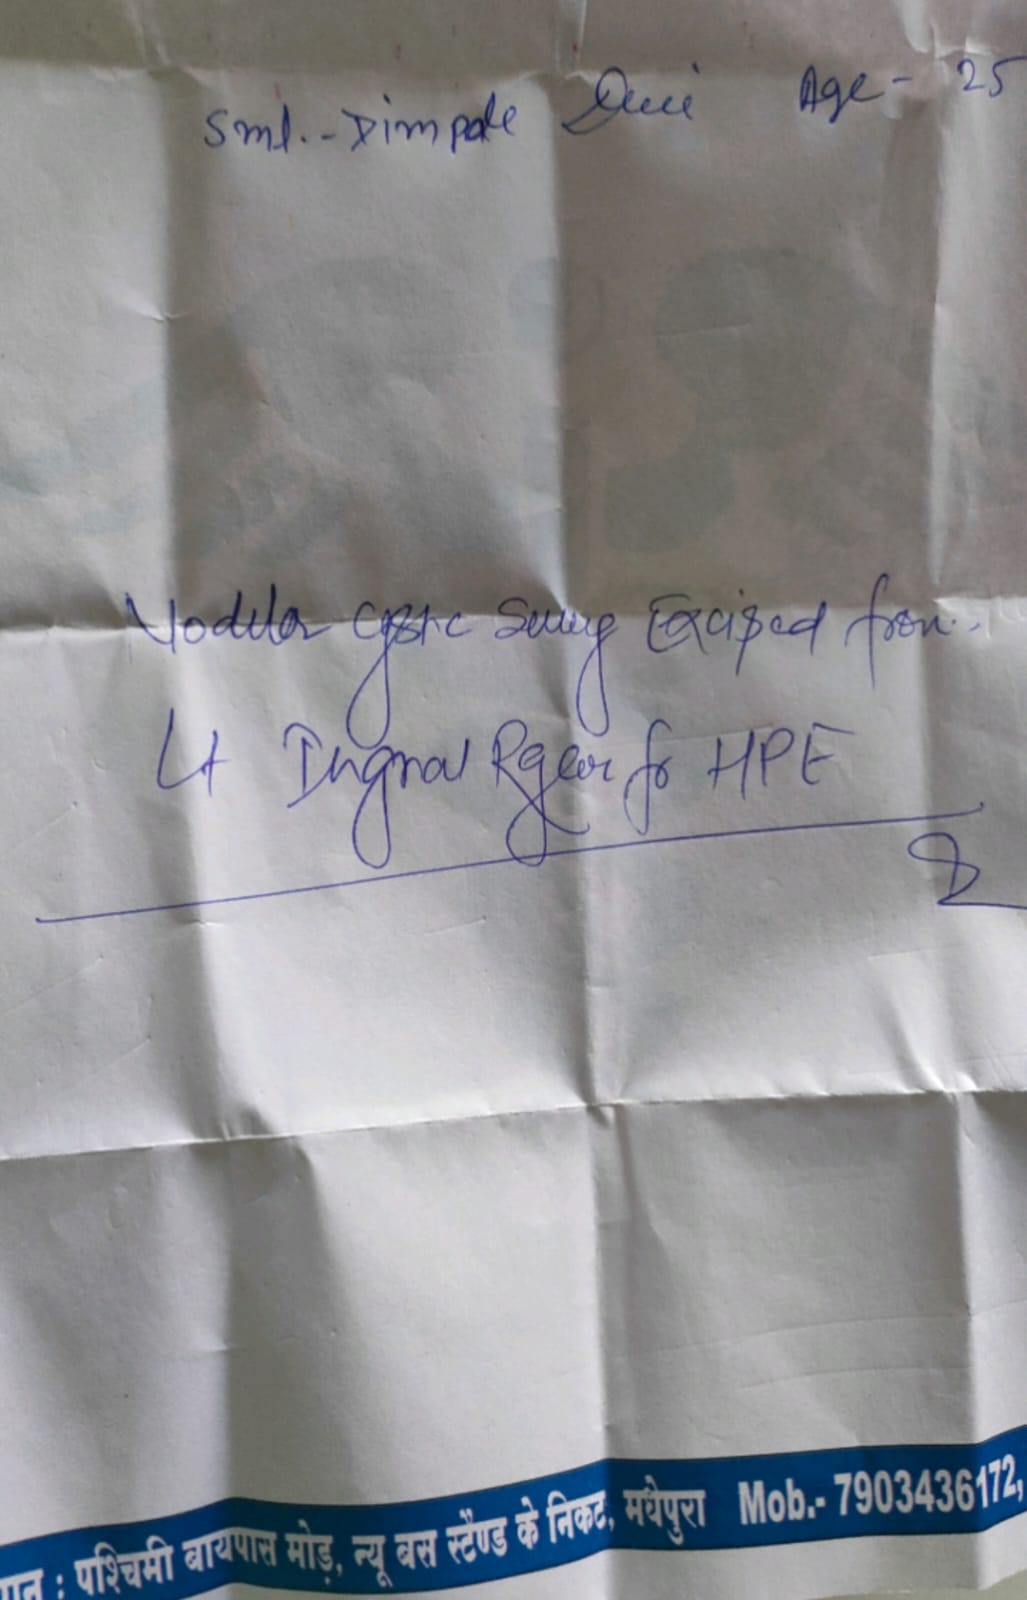 Smt.- Dimpale Devi Age- 25
Nodular cystic Swelling Excised from
Lt Inguinal Region for HPE
: पश्चिमी बायपास मोड़, न्यू बस स्टैण्ड के निकट, मधेपुरा Mob.- 7903436172,